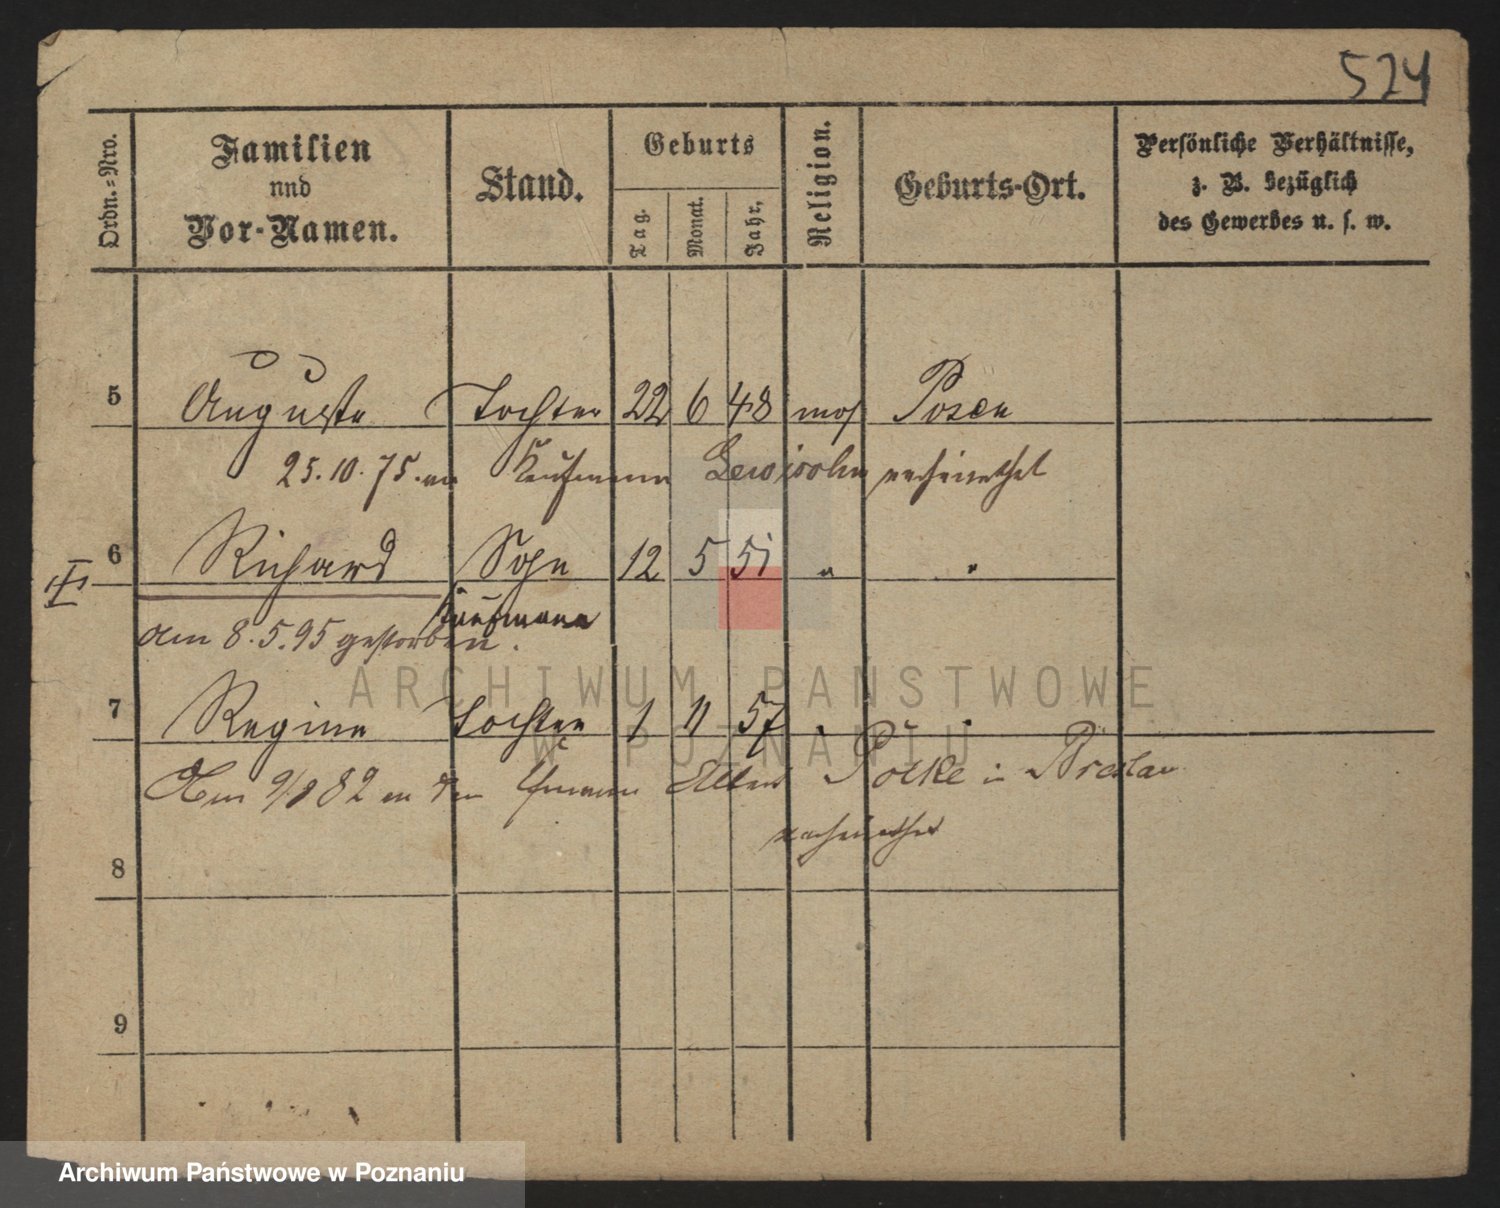 524
Ordn.-Nro.
Familien
nnd
Vor-Namen.
Stand.
Geburts
Tag.
Monat.
Jahr,
Religion.
Geburts-Ort.
Persönliche Verhältnisse,
z. B. bezüglich
des Gewerbes u. s. w.
5 Auguste Tochter 22 6 48 mos Posen
25.10.75. an Kaufmann Lewisohn verheirathet
6 Richard Sohn 12 5 51 " "
III
Kaufmann
am 8.5.95 gestorben.
7 Regine Tochter 1 11 57 " "
Am 9/8 82 an den Kfmann Polke in Breslau
verheirathet
8
9
ARCHIWUM PAŃSTWOWE
W POZNANIU
Archiwum Państwowe w Poznaniu